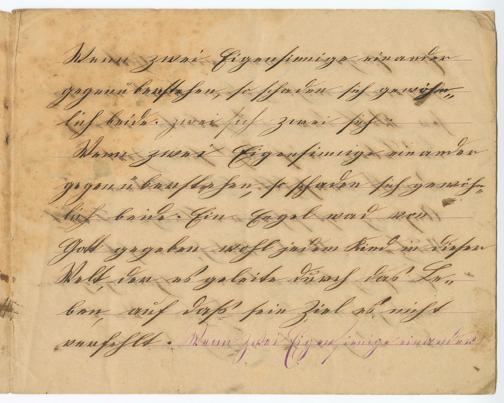 Wenn zwei Eigensinnige einander
gegenüberstehen, so schaden sich gewöhn-
lich beide. zwei sich zwei sich.
Wenn zwei Eigensinnige einander
gegenüberstehen, so schaden sich gewöh-
lich beide. Ein Engel ward von
Gott gegeben wohl jedem Kind in dieser
Welt, der es geleite durch das Le-
ben, auf daß sein Ziel es nicht
verfehlt. Wenn zwei Eigensinnige einander